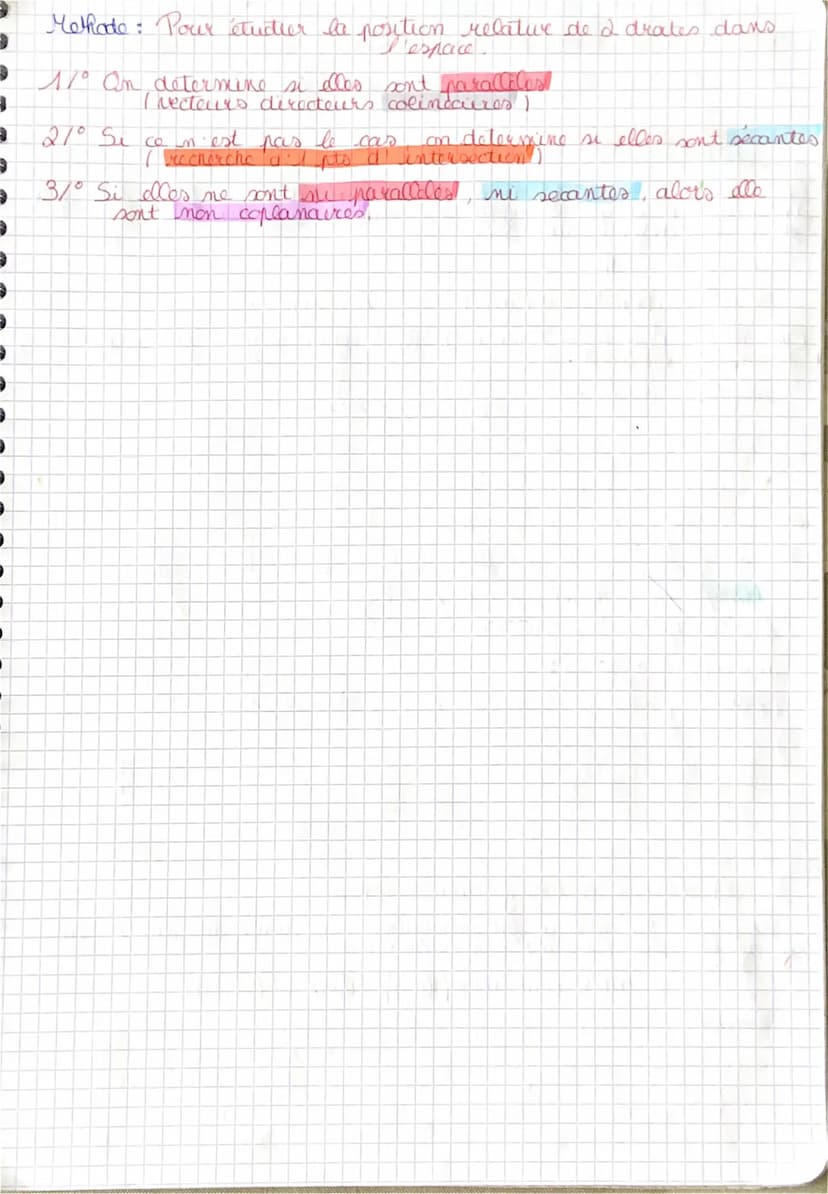 Methode : Pour étudier la position relative de 2 droites dans
l'espace.
1/° On determine si elles sont parallèles
( vecteurs directeurs colinéaires )
2/° Si ce n'est pas le cas, on determine si elles sont sécantes
( recherche d'1 pts d'intersection )
3/° Si elles ne sont ni parallèles, ni secantes, alors elle
sont non coplanaires.